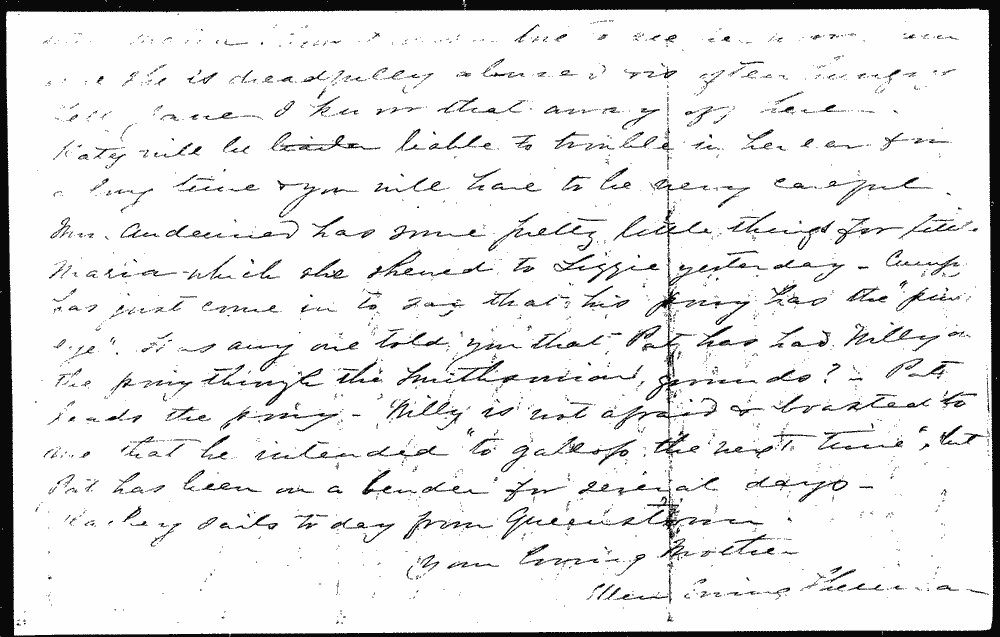 to see
she is dreadfully abused & is often hungry
Tell Jane I know that away off here.
Katy will be liable to trouble in her ear for
a long time & you will have to be very careful.
Mrs. Audenried has some pretty little things for little
Maria which she showed to Lizzie yesterday - Cump
has just come in to say that his pony has the "pink
eye". Has any one told you that Pat has had Willy on
the pony through the Smithsonian, grounds? - Pat
leads the pony - Willy is not afraid & boasted to
me that he intended "to gallop the next time", but
Pat has been on a bender for several days -
sails to day from Queenstown.
Your loving Mother
Ellen Ewing Sherman